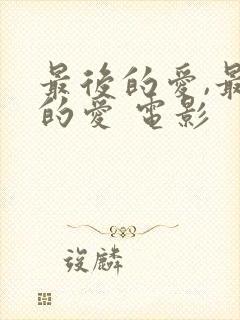 最後的愛,最
的愛 電影
筱麟